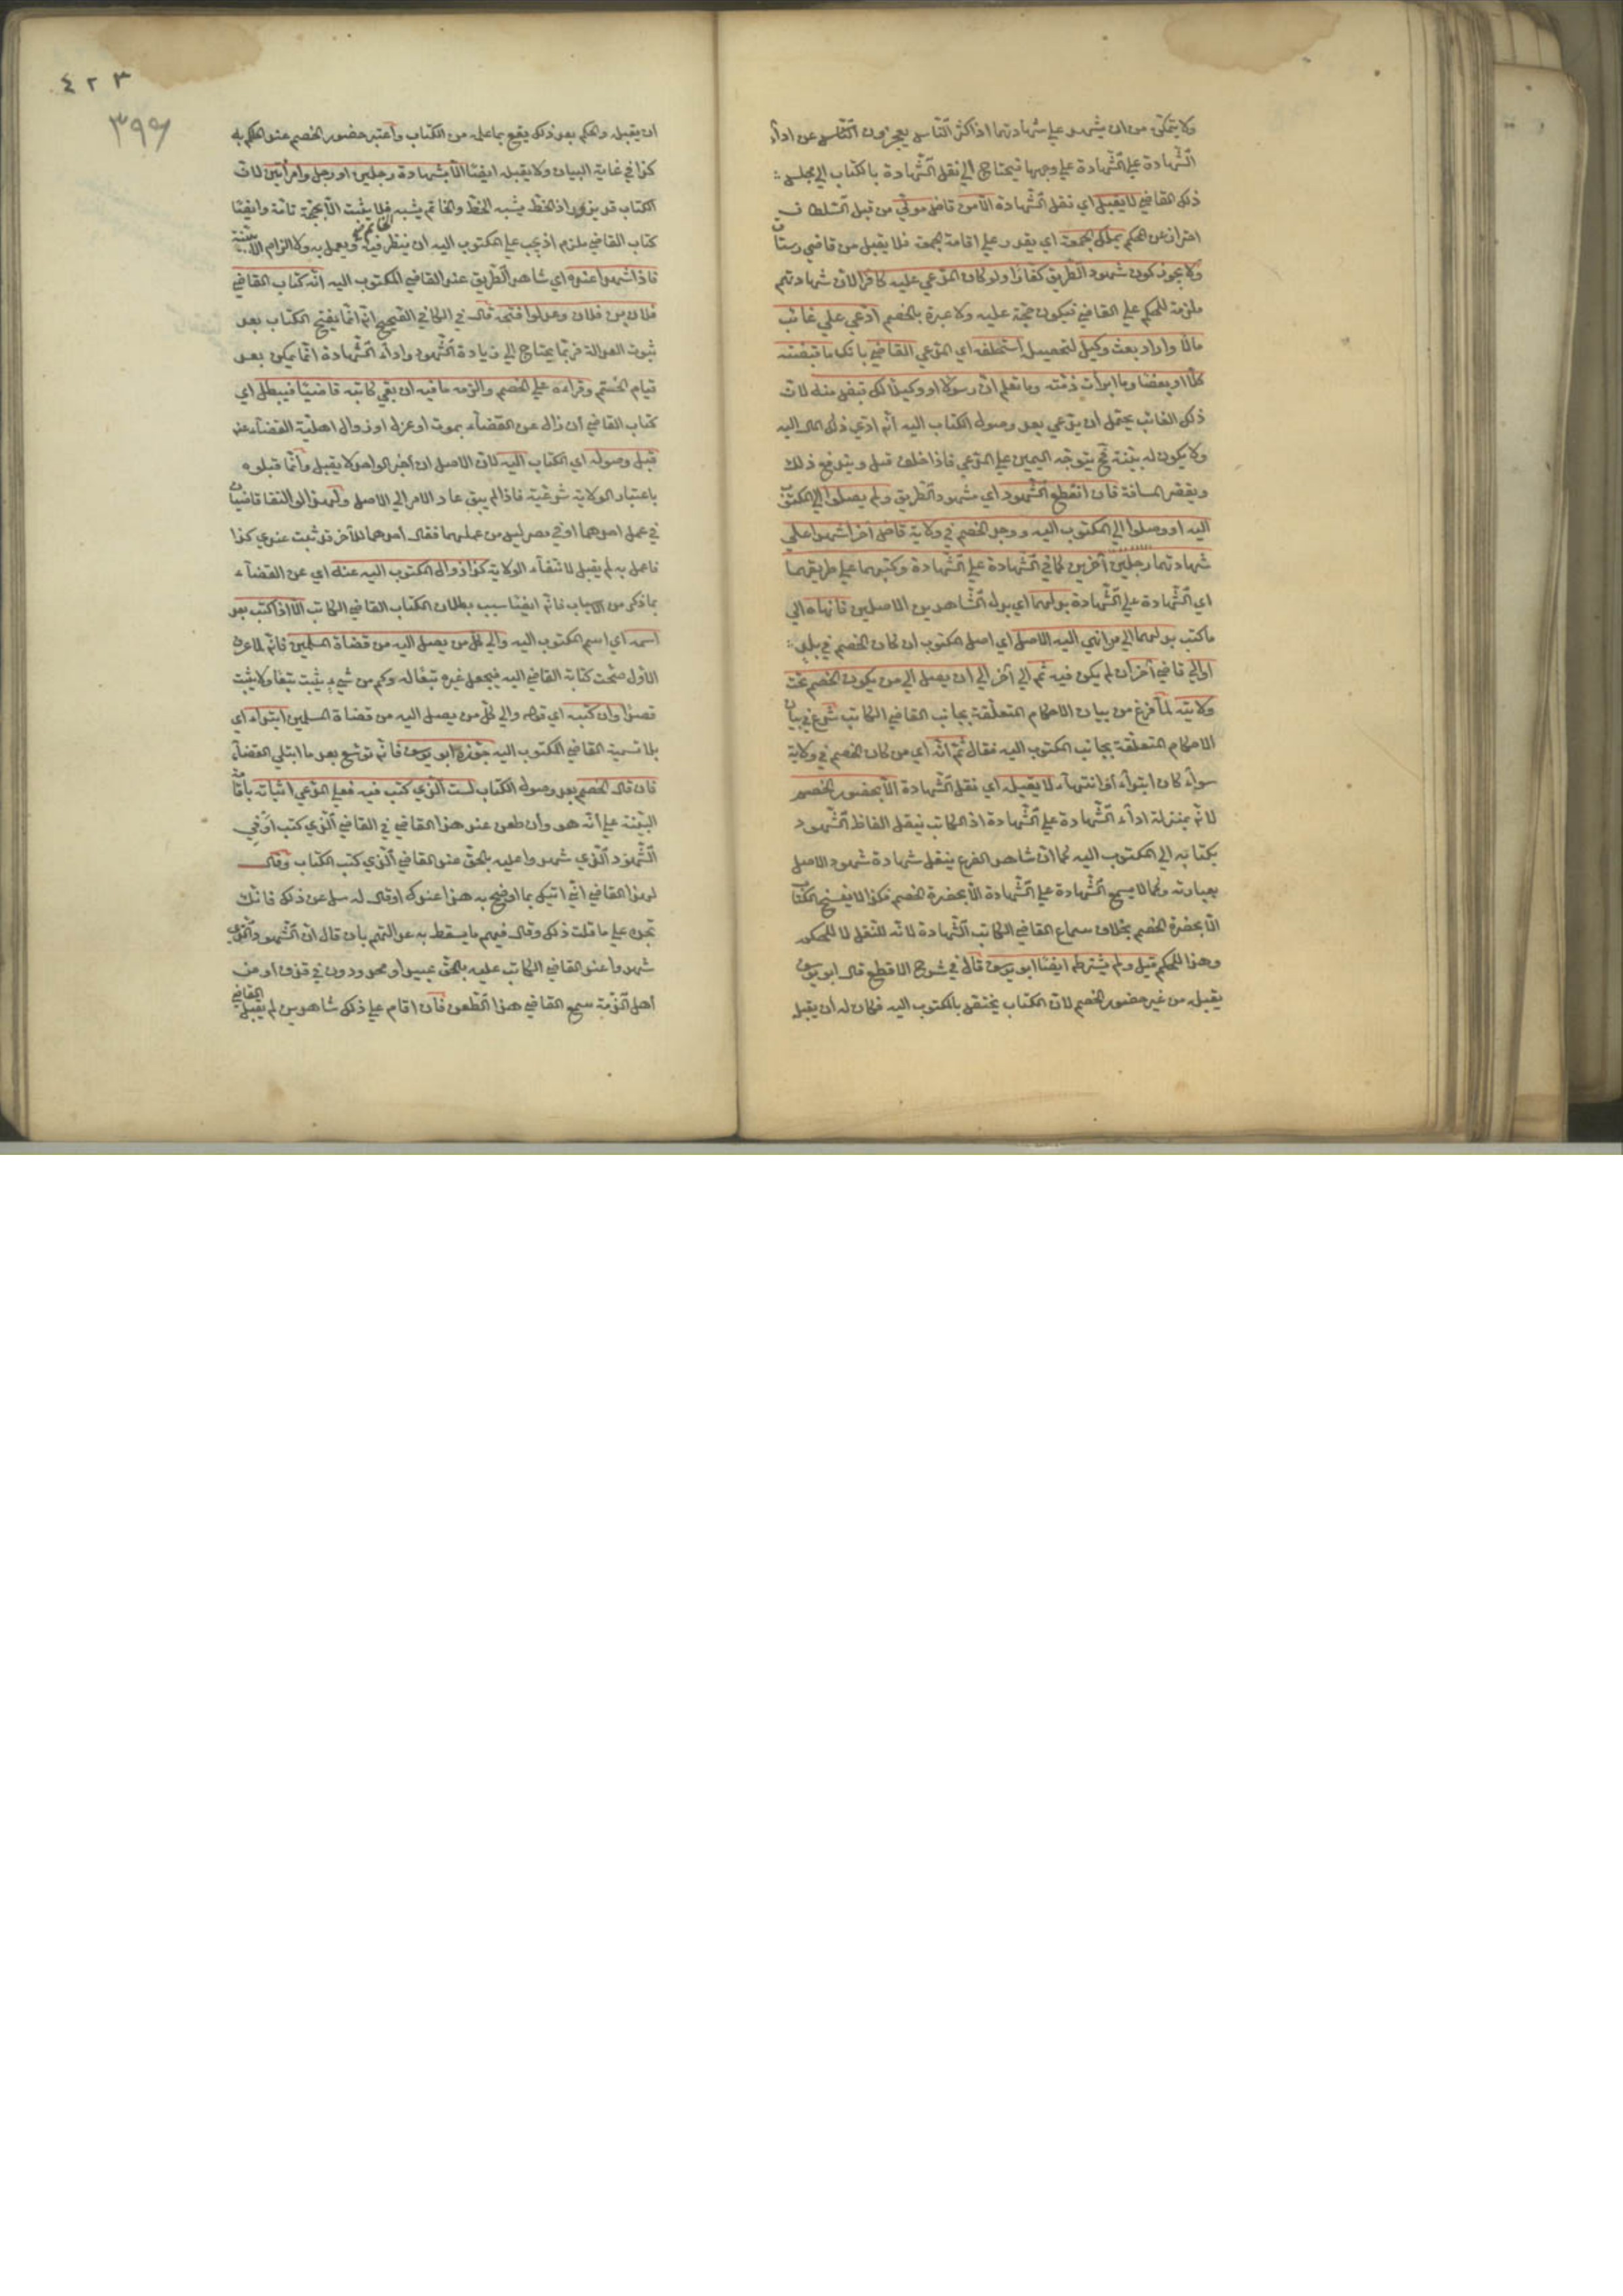 ولا يتمكن من ان يشهد على شهادتهما اذ اكثر الناس يعجزون عن اداء
الشهادة على الشهادة على وجهها فيحتاج الى نقل الشهادة بالكتاب الى مجلس
ذلك القاضي لا يقبل اي نقل الشهادة الا من قاض مولى من قبل السلطان
احتراز عن المحكم يملك الجمعة اي يقدر على اقامة الجمعة فلا يقبل من قاضي رستاق
ولا يجوز كون شهود الطريق كفارا ولو كان المدعي عليه كافرا لان شهادتهم
ملزمة للحكم على القاضي فيكون حجة عليه ولا عبرة بالخصم ادعي على غائب
مالا واراد بعث وكيل لتحصيل استحلفه اي المدعي القاضي بانك ما قبضته
كلا او بعضا وما ابرأت ذمته وما تعلم ان رسولا او وكيلا لك قبض منه لان
ذلك الغائب يحتمل ان يدعي بعد وصول الكتاب اليه انه ادي ذلك المال اليه
ولا يكون له بينة فح يتوجه اليمين على المدعي فاذا حلف قبل ويندفع ذلك
ويقصر المسافة فان انقطع الشهود اي شهود الطريق ولم يصلوا الى المكتوب
اليه او وصلوا الى المكتوب اليه ووجد الخصم في ولاية قاض آخر اشهدوا على
شهادتهما رجلين آخرين كما في الشهادة على الشهادة وكتبهما على طريقهما
اي الشهادة على الشهادة بدلهما اي بدل الشاهدين الاصلين فانهاه الى
ما كتب بدلهما الى من انهي اليه الاصل اي اصل المكتوب ان كان الخصم في بلده
او الى قاضي آخر ان لم يكن فيه ثم الى آخر الى ان يصل الى من يكون الخصم تحت
ولايته لما فرغ من بيان الاحكام المتعلقة بجانب القاضي الكاتب شرع في بيان
الاحكام المتعلقة بجانب المكتوب اليه فقال ثم انه اي من كان الخصم في ولاية
سواء كان ابتداء او انتهاء لا يقبله اي نقل الشهادة الا بحضور الخصم
لانه بمنزلة اداء الشهادة على الشهادة اذ الكاتب ينقل الفاظ الشهود
بكتابه الى المكتوب اليه كما ان شاهد الفرع ينقل شهادة شهود الاصل
بعبارته وكما لا يسمع الشهادة على الشهادة الا بحضرة الخصم فكذا لا يفتح الكتاب
الا بحضرة الخصم بخلاف سماع القاضي الكاتب الشهادة لانه للنقل لا للحكم
وهذا للحكم قيل ولم يشترطه ايضا ابو يوسف قال في شرح الاقطع قال ابو يوسف
يقبله من غير حضور الخصم لان الكتاب يختص بالمكتوب اليه فكان له ان يقبل
٤٢٣
٣٩٩
ان يقبله والحكم بعد ذلك يقع بما علمه من الكتاب واعتبر حضور الخصم عند الحكم به
كذا في غاية البيان ولا يقبله ايضا الا بشهادة رجلين او رجل وامرأتين لان
الكتاب قد يزور اذ الخط يشبه الخط والخاتم يشبه الخاتم فلا يثبت الا بحجة تامة وايضا
كتاب القاضي ملزم اذ يجب على المكتوب اليه ان ينظر فيه ويعمل به ولا الزام الا ببينة
فاذا شهدوا عنده اي شاهد الطريق عند القاضي المكتوب اليه انه كتاب القاضي
فلان بن فلان وعدلوا فتحه قال في الكافي الصحيح انه انما يفتح الكتاب بعد
ثبوت العدالة فربما يحتاج الى زيادة الشهود واداء الشهادة انما يمكن بعد
قيام الختم وقراءه على الخصم والزمه ما فيه ان بقي كاتبه قاضيا فيبطل اي
كتاب القاضي ان زال عن القضاء بموت او عزل او زوال اهلية القضاء عنه
قبل وصوله اي الكتاب اليه لان الاصل ان اخبر الواحد لا يقبل وانما قبلوه
باعتبار الولاية شرعية فاذا لم يبق عاد الامر الى الاصل ولهذا لو التقا قاضيان
في عمل احدهما او في مصر ليس من عملهما فقال احدهما للآخر قد ثبت عندي كذا
فاعمل به لم يقبل لانتفاء الولاية كذا زوال المكتوب اليه عنه اي عن القضاء
بما ذكر من الاسباب فانه ايضا سبب بطلان الكتاب القاضي الكاتب الا اذا كتب بعد
اسمه اي اسم المكتوب اليه والى كل من يصل اليه من قضاة المسلمين فانه لما عرف
الاول صحت كتابة القاضي اليه فيجعل غيره تبعا له وكم من شيء يثبت تبعا ولا يثبت
قصدا وان كتبه اي قوله والى كل من يصل اليه من قضاة المسلمين ابتداء اي
بلا تسمية القاضي المكتوب اليه جوزه ابو يوسف فانه توسع بعد ما ابتلي القضاء
فان قال الخصم بعد وصول الكتاب لست الذي كتب فيه فعلى المدعي اثباته باقامة
البينة على انه هو وان طعن عند هذا القاضي في القاضي الذي كتب او في
الشهود الذي شهدوا عليه بالحق عند القاضي الذي كتب الكتاب وقال
لهذا القاضي اني اتيتك بما اوضح به هذا عندك او قال له سل عن ذلك فانك
تجده على ما قلت ذلك وقال فيهم ما يسقط به عدالتهم بان قال ان الشهود الذي
شهدوا عند القاضي الكاتب عليه بالحق عبيد او محدودون في قذف او من
اهل الذمة سمع القاضي هذا الطعن فان اقام على ذلك شاهدين لم يقبل القاضي